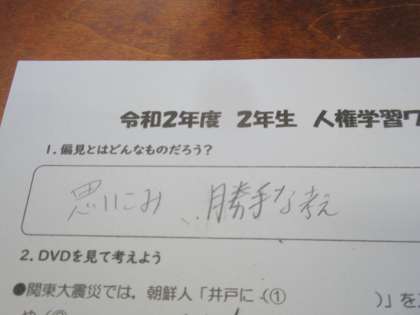 令和2年度 2年生 人権学習ワ
1. 偏見とはどんなものだろう?
思いこみ、勝手な考え
2. DVDを見て考えよう
●関東大震災では、朝鮮人「井戸に(①　　　　)」を